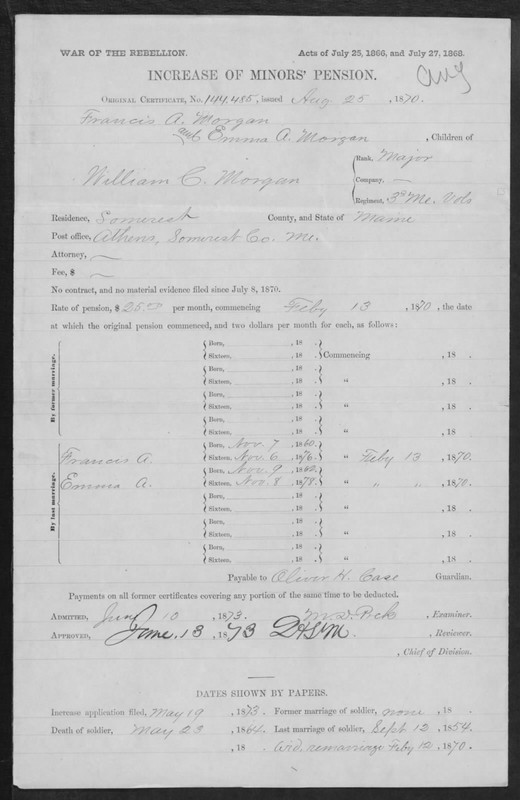 WAR OF THE REBELLION. Acts of July 25, 1866, and July 27, 1868.
Aug
INCREASE OF MINORS' PENSION.
ORIGINAL CERTIFICATE, No. 144,485, issued Aug 25, 1870.
Francis A. Morgan
and Emma A. Morgan, Children of
William C. Morgan { Rank, Major
Company, —
Regiment, 3d Me. Vols
Residence, Somerset County, and State of Maine
Post office, Athens, Somerset Co. Me.
Attorney, —
Fee, $ —
No contract, and no material evidence filed since July 8, 1870.
Rate of pension, $ 25.00 per month, commencing Feby 13, 1870, the date
at which the original pension commenced, and two dollars per month for each, as follows:
By former marriage.
Born, , 18 .
Sixteen, , 18 . Commencing , 18 .
Born, , 18 .
Sixteen, , 18 . " , 18 .
Born, , 18 .
Sixteen, , 18 . " , 18 .
Born, , 18 .
Sixteen, , 18 . " , 18 .
By last marriage.
Born, Nov. 7, 1860.
Francis A. Sixteen, Nov. 6, 1876. " Feby 13, 1870.
Born, Nov. 9, 1862.
Emma A. Sixteen, Nov. 8, 1878. " " ", 1870.
Born, , 18 .
Sixteen, , 18 . " , 18 .
Born, , 18 .
Sixteen, , 18 . " , 18 .
Born, , 18 .
Sixteen, , 18 . " , 18 .
Payable to Oliver H. Case Guardian.
Payments on all former certificates covering any portion of the same time to be deducted.
ADMITTED, June 10, 1873. , Examiner.
APPROVED, June. 13, 1873 , Reviewer.
, Chief of Division.
DATES SHOWN BY PAPERS.
Increase application filed, May 19, 1873. Former marriage of soldier, none, 18 .
Death of soldier, May 23, 1864. Last marriage of soldier, Sept 12, 1854.
, 18 . Wid. remarriage Feby 12, 1870.